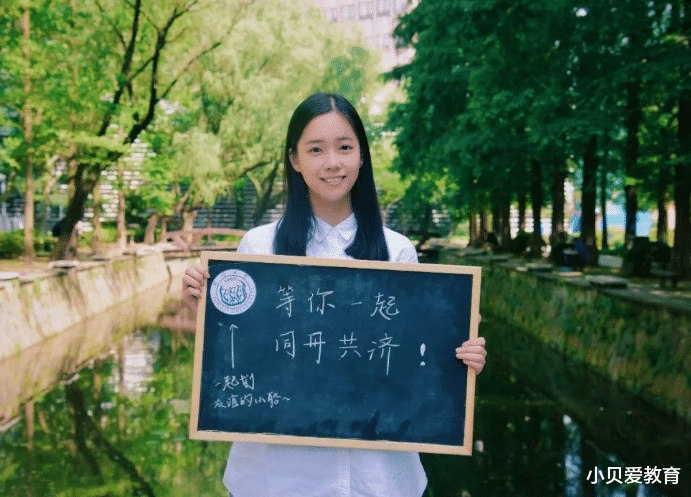 等你一起
同舟共济！
一起划
友谊的小船~
小贝爱教育